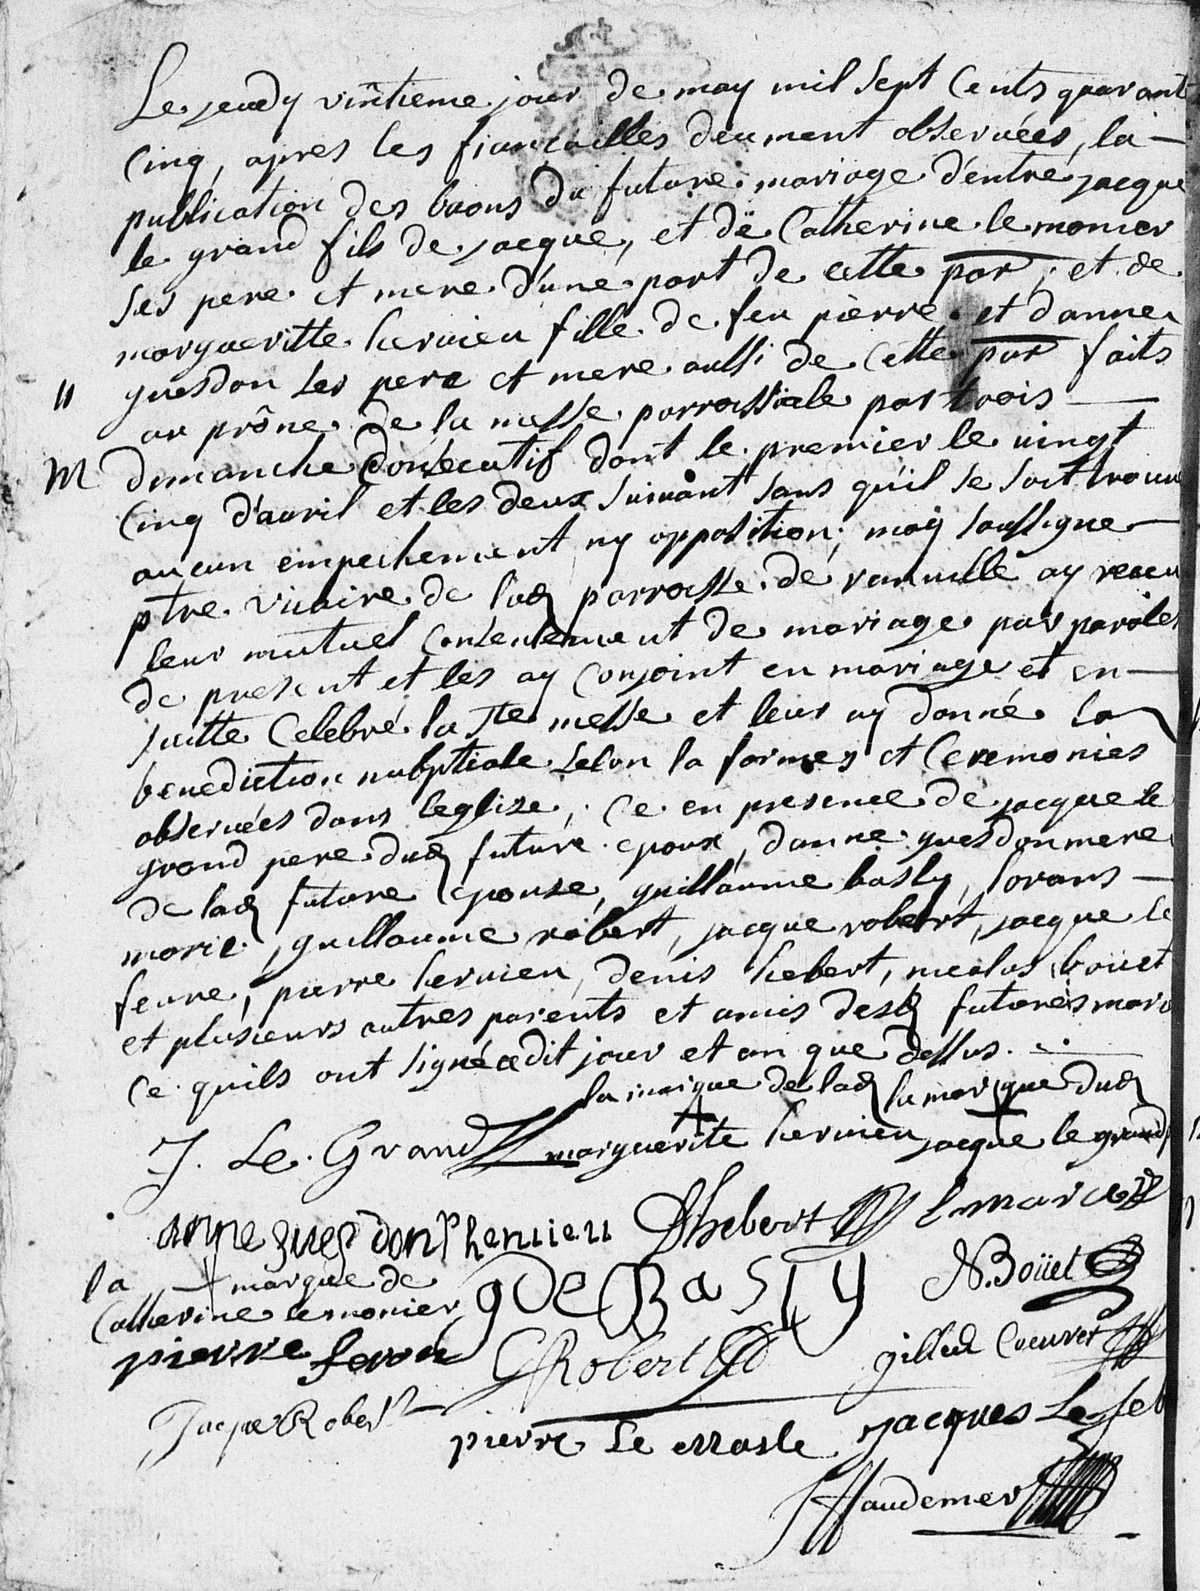 Le jeudy vintieme jour de may mil sept Cents quarant
Cinq, apres les fiancailles deument observées, la
publication des bans du future mariage d'entre jacque
le grand fils de jacque, et de Catherine le monier
ses pere et mere d'une part de cette par; et de
margueritte hervieu fille de feu pierre et danne
guesdon ses pere et mere aussi de Cette par faits
au prône de la messe parroissiale par trois
M dimanche Consecutif dont le premier le vingt
Cinq d'avril et les deux suivant sans qu'il se soit trouvé
aucun empechement ny opposition; moy soussigne
ptre vicaire de lad parroisse de ranville ay receu
leur mutuel consentement de mariage par paroles
de present et les ay conjoint en mariage et en
suitte Celebré la Ste messe et leur ay donné la
benediction nubptiale selon la formes et Ceremonies
observées dans leglise, Ce en presence de jacque le
grand pere dud future epoux, danne guesdon mere
de lad future epouse, guillaume basly, lorans
marie, guillaume robert, jacque robert, jacque le
fevre, pierre hervieu, denis hebert, nicolas bouet
et plusieurs autres parents et amis desd futures mari
Ce quils ont signé cedit jour et an que dessus.
la marque de lad la marque dud
J. Le Grand margueritte hervieu jacque le grand
anne guesdon hervieu Dhebert l marie
la marque de
Catherine lemonier g De Basly N. Boüet
pierre feron G Robert gilles Coeuret
Jacque Robert pierre Le masle jacques Le feb
haudemer